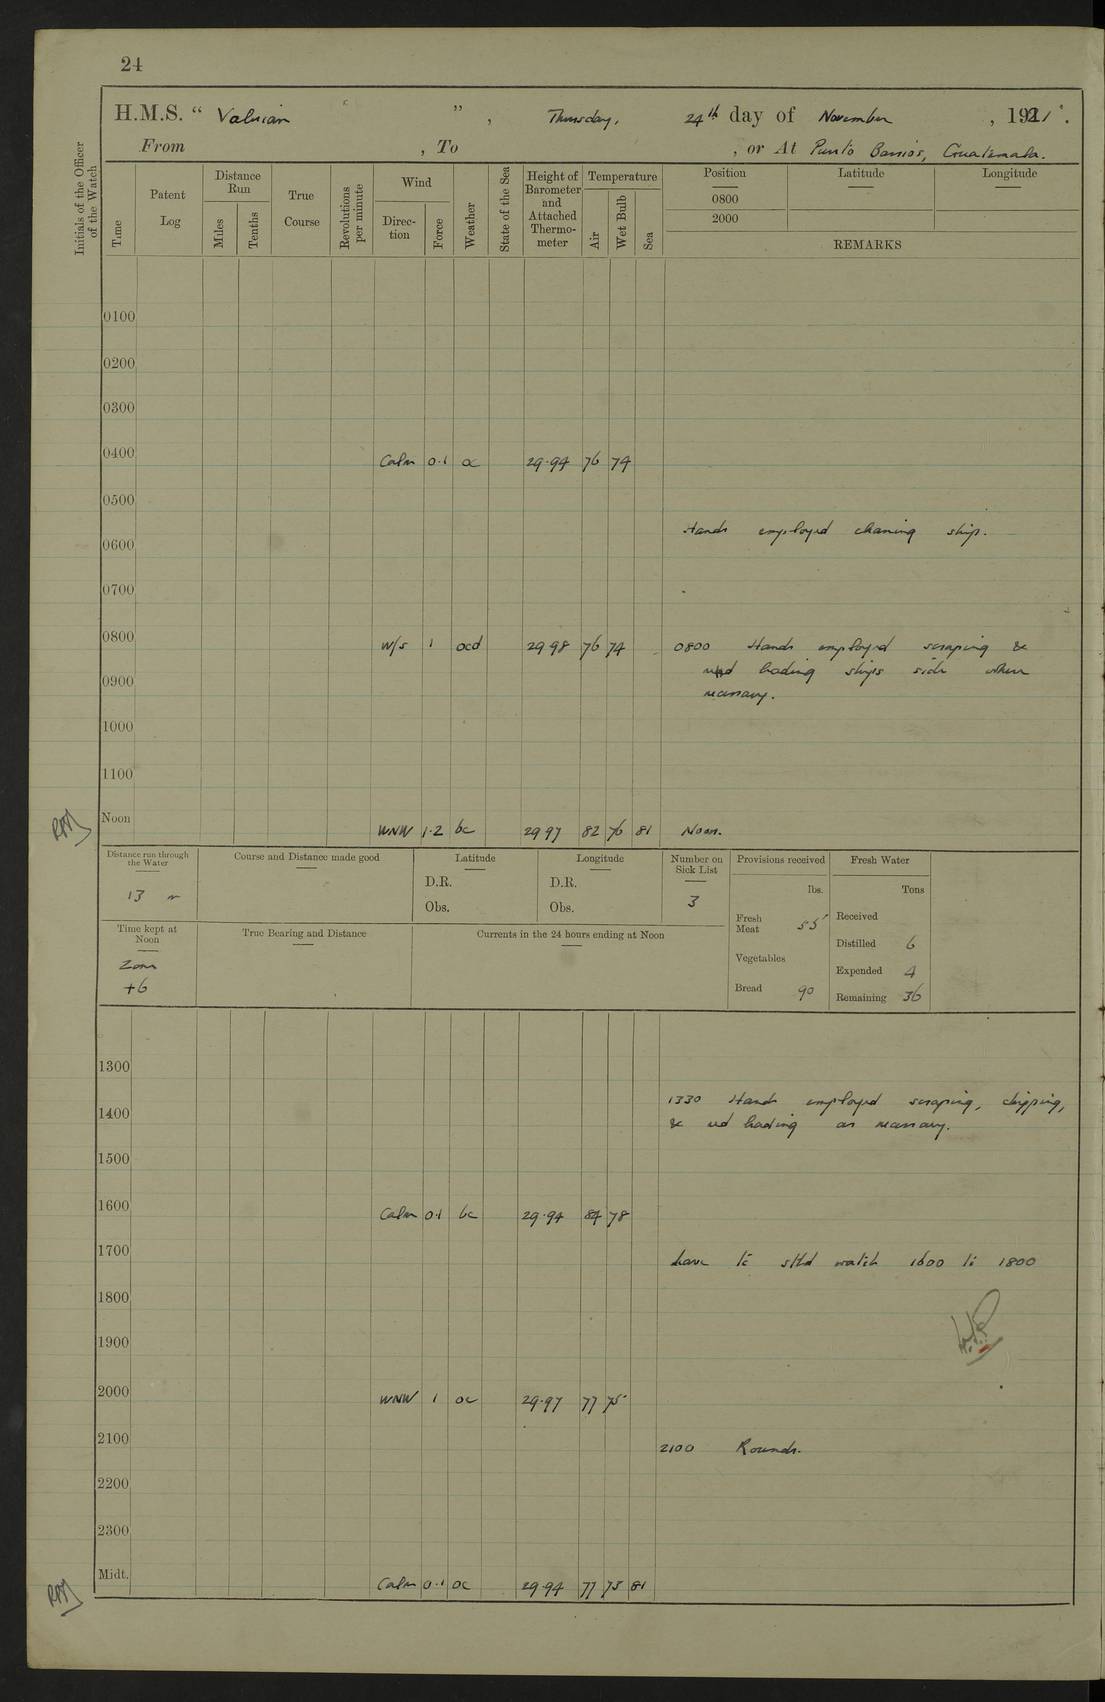 24
H.M.S. " Valerian ", Thursday, 24th day of November, 1921.
From , To , or At Puerto Barrios, Guatemala.
Initials of the Officer of the Watch
Time
Patent Log
Distance Run
Miles
Tenths
True Course
Revolutions per minute
Wind
Direction
Force
Weather
State of the Sea
Height of Barometer and Attached Thermometer
Temperature
Air
Wet Bulb
Sea
Position Latitude Longitude
0800
2000
REMARKS
0100
0200
0300
0400 Calm 0.1 oc 29.94 76 74
0500
Hands employed cleaning ship.
0600
0700
0800 W/S 1 ocd 29 98 76 74 0800 Hands employed scraping &
red leading ships side where
necessary.
0900
1000
1100
Noon WNW 1.2 bc 29 97 82 76 81 Noon.
Distance run through the Water
13
Course and Distance made good
Latitude
D.R.
Obs.
Longitude
D.R.
Obs.
Number on Sick List
3
Provisions received
lbs.
Fresh Meat 55
Vegetables
Bread 90
Fresh Water
Tons
Received
Distilled 6
Expended 4
Remaining 36
Time kept at Noon
Zone
+6
True Bearing and Distance
Currents in the 24 hours ending at Noon
1300
1330 Hands employed scraping, chipping,
& red leading as necessary.
1400
1500
1600 Calm 0.1 bc 29.94 84 78
1700
Leave to stbd watch 1600 to 1800
1800
1900
2000 WNW 1 oc 29.97 77 75
2100 2100 Rounds.
2200
2300
Midt. Calm 0.1 oc 29.94 77 73 81